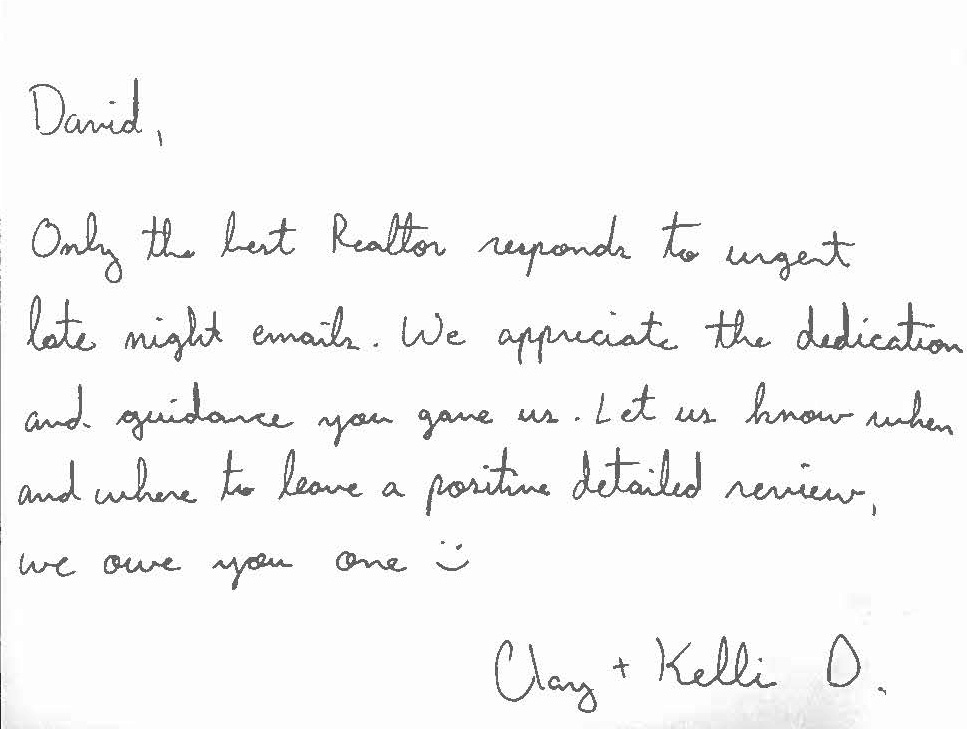 David,
Only the best Realtor responds to urgent
late night emails. We appreciate the dedication
and guidance you gave us. Let us know when
and where to leave a positive detailed review,
we owe you one :)
Clay + Kelli D.